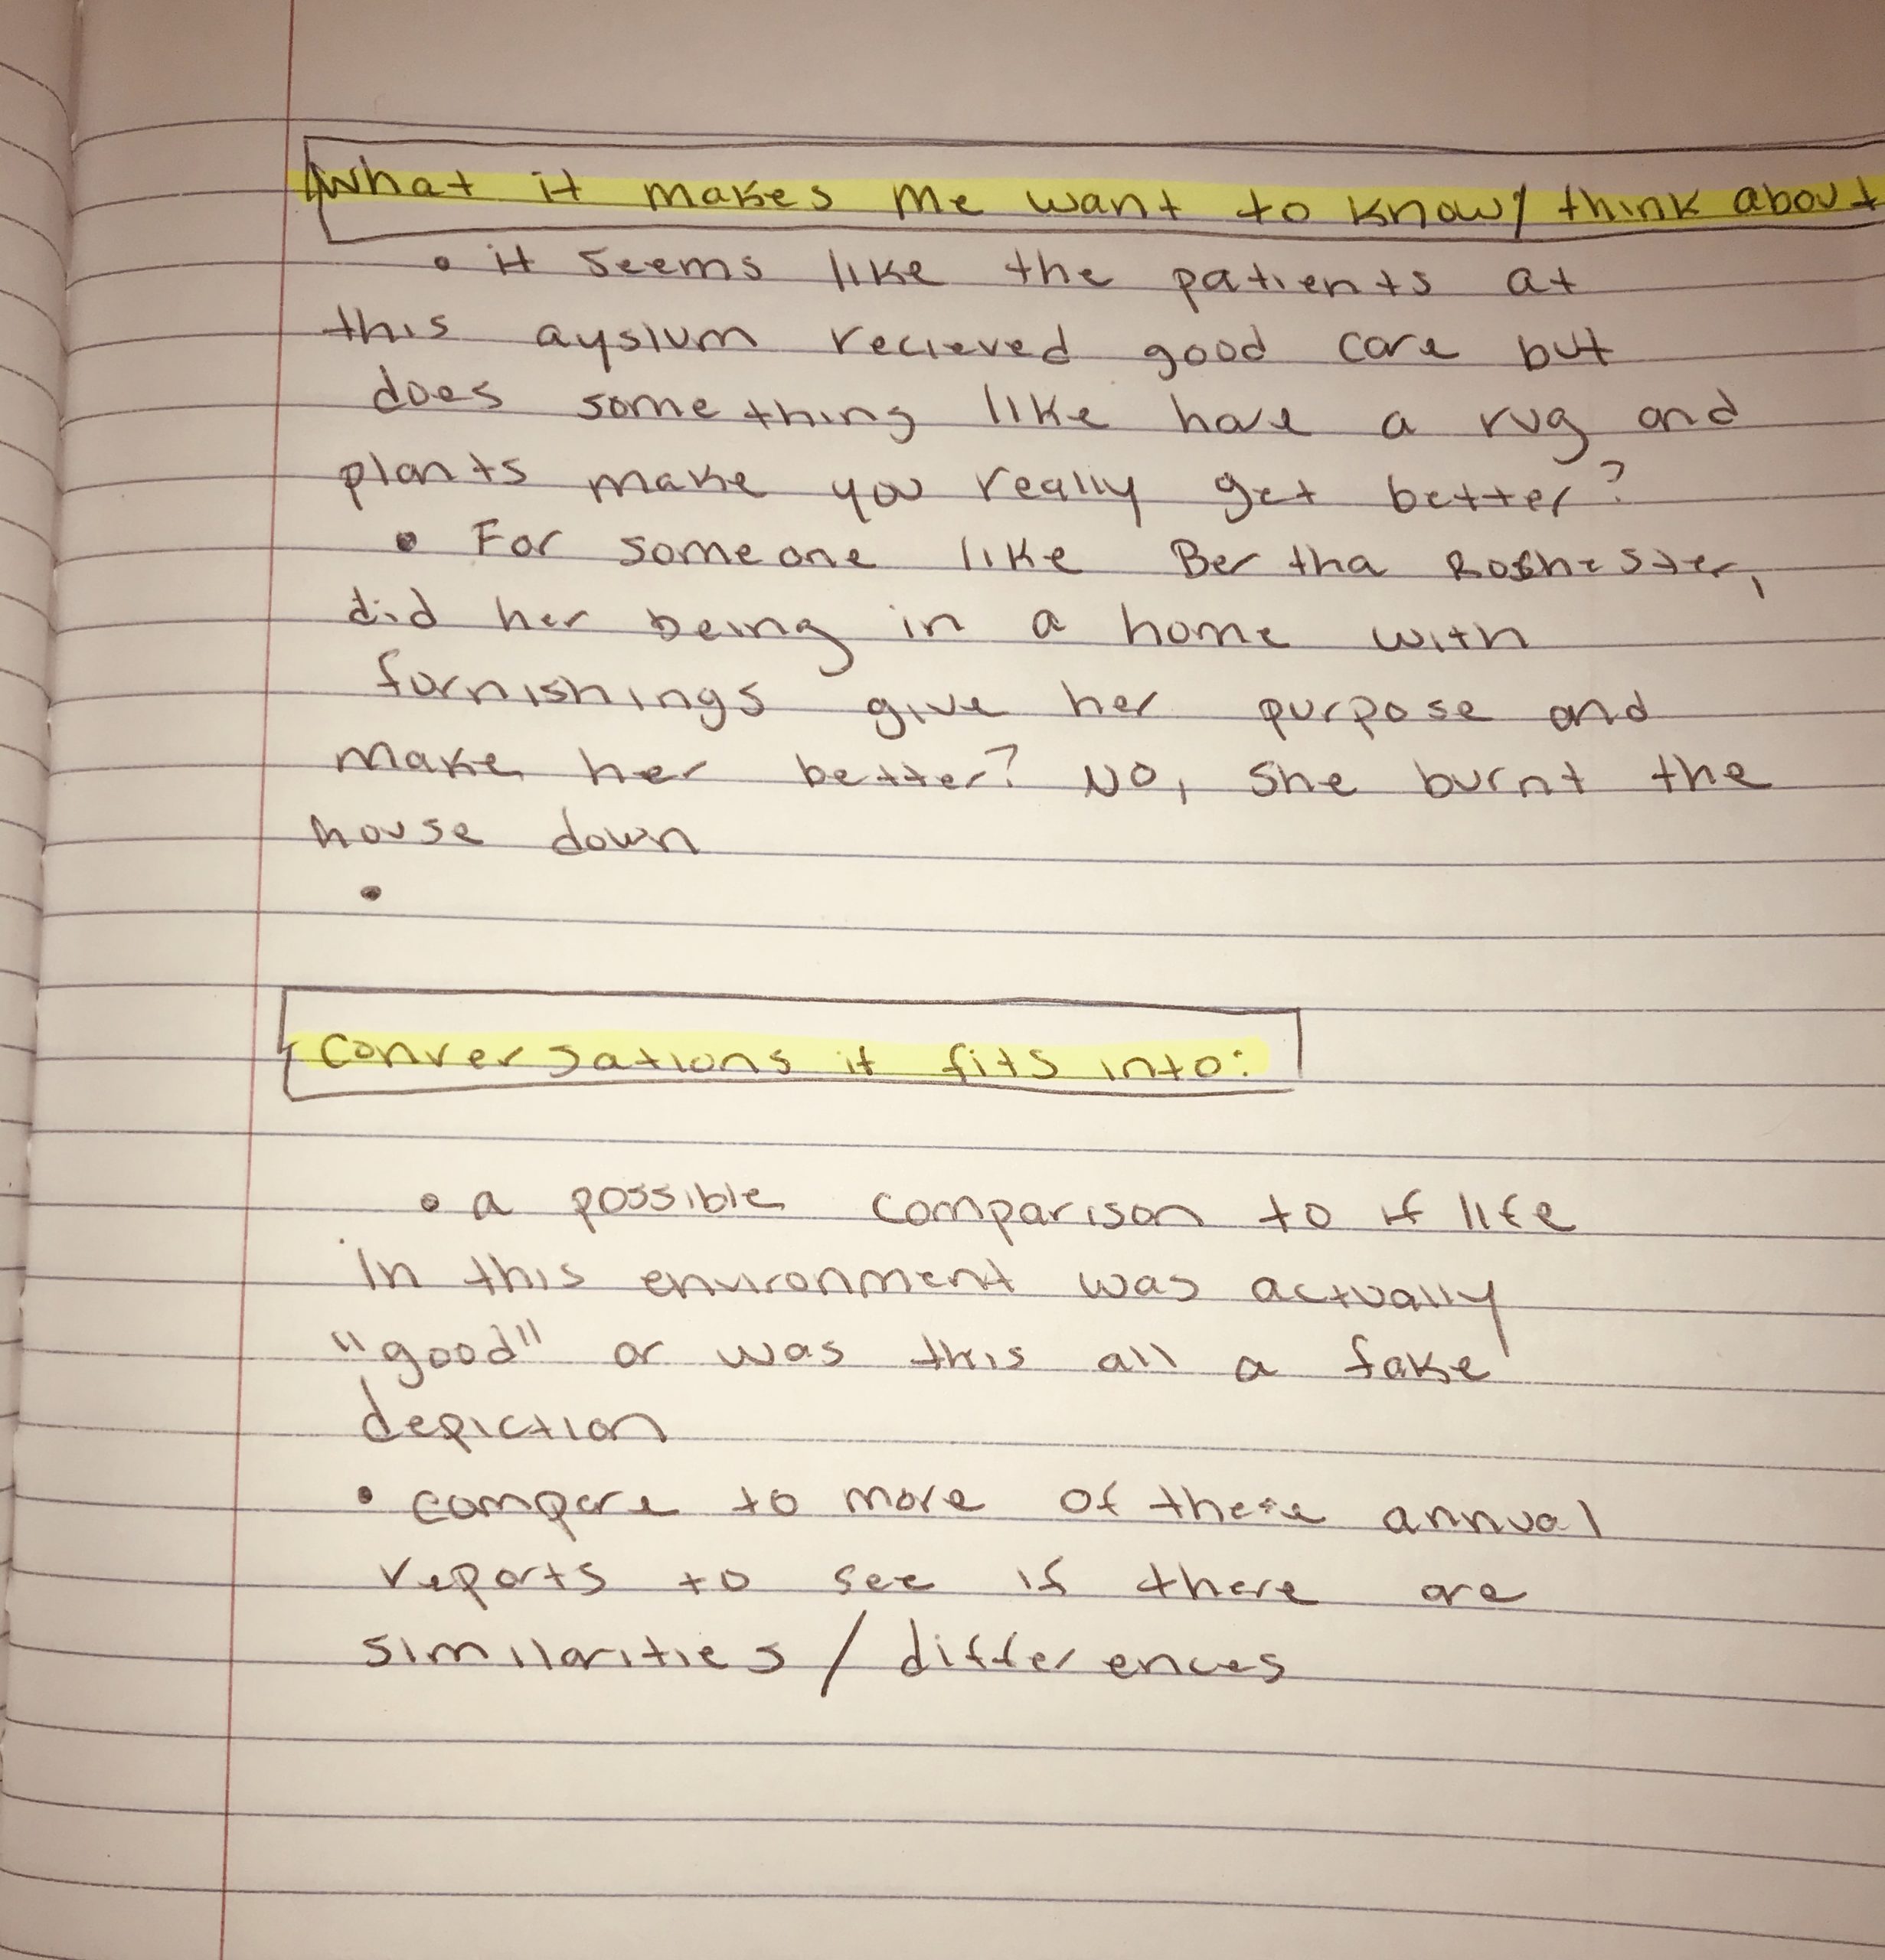 What it makes me want to know/think about
• it seems like the patients at
this ayslum recieved good care but
does something like have a rug and
plants make you really get better?
• For someone like Bertha Rochester,
did her being in a home with
furnishings give her purpose and
make her better? NO, she burnt the
house down
•
Conversations it fits into:
• a possible comparison to if life
in this environment was actually
"good" or was this all a fake
depiction
• compare to more of these annual
reports to see if there are
similarities/differences